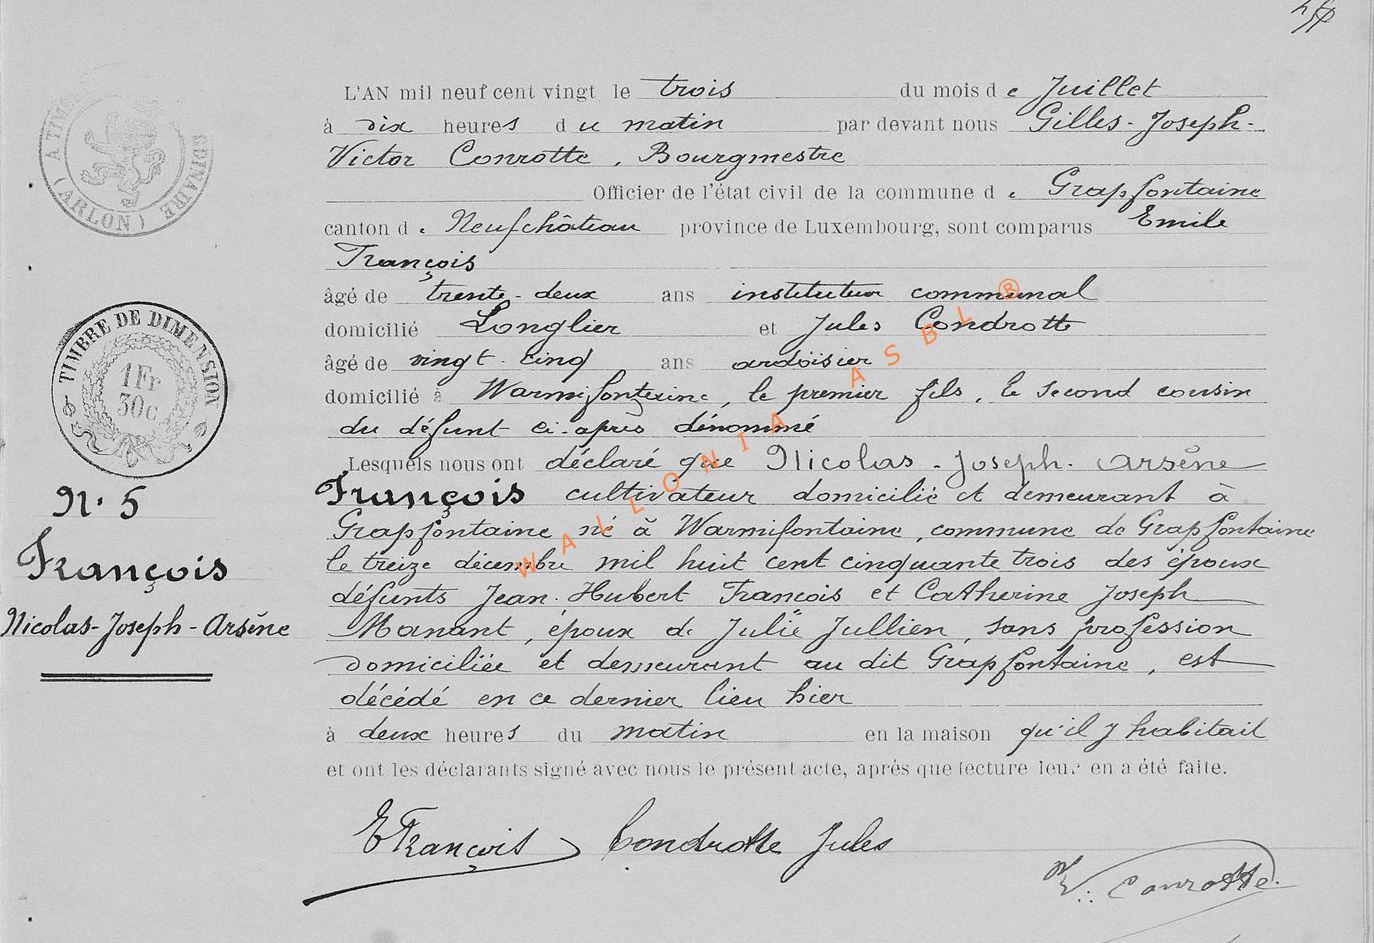 L'AN mil neuf cent vingt le trois du mois de Juillet
à dix heures du matin par devant nous Gilles-Joseph-
Victor Conrotte, Bourgmestre
Officier de l'état civil de la commune de Grapfontaine
canton de Neufchâteau province de Luxembourg, sont comparus Emile
François
âgé de trente-deux ans instituteur communal
domicilié Longlier et Jules Condrotte
âgé de vingt-cinq ans ardoisier
domicilié à Warmifontaine, le premier fils, le second cousin
du défunt ci-après dénommé
Lesquels nous ont déclaré que Nicolas-Joseph-Arsène
François cultivateur domicilié et demeurant à
Grapfontaine né à Warmifontaine, commune de Grapfontaine
le treize décembre mil huit cent cinquante trois des époux
défunts Jean-Hubert François et Catherine Joseph
Manant, époux de Julie Jullien, sans profession
domiciliée et demeurant au dit Grapfontaine, est
décédé en ce dernier lieu hier
à deux heures du matin en la maison qu'il y habitait
et ont les déclarants signé avec nous le présent acte, après que lecture leur en a été faite.
E François Condrotte Jules
V. Conrotte
(ARLON)
TIMBRE DE DIMENSION
1 Fr
30c
N. 5
François
Nicolas-Joseph-Arsène
WALLONIA ASBL ®